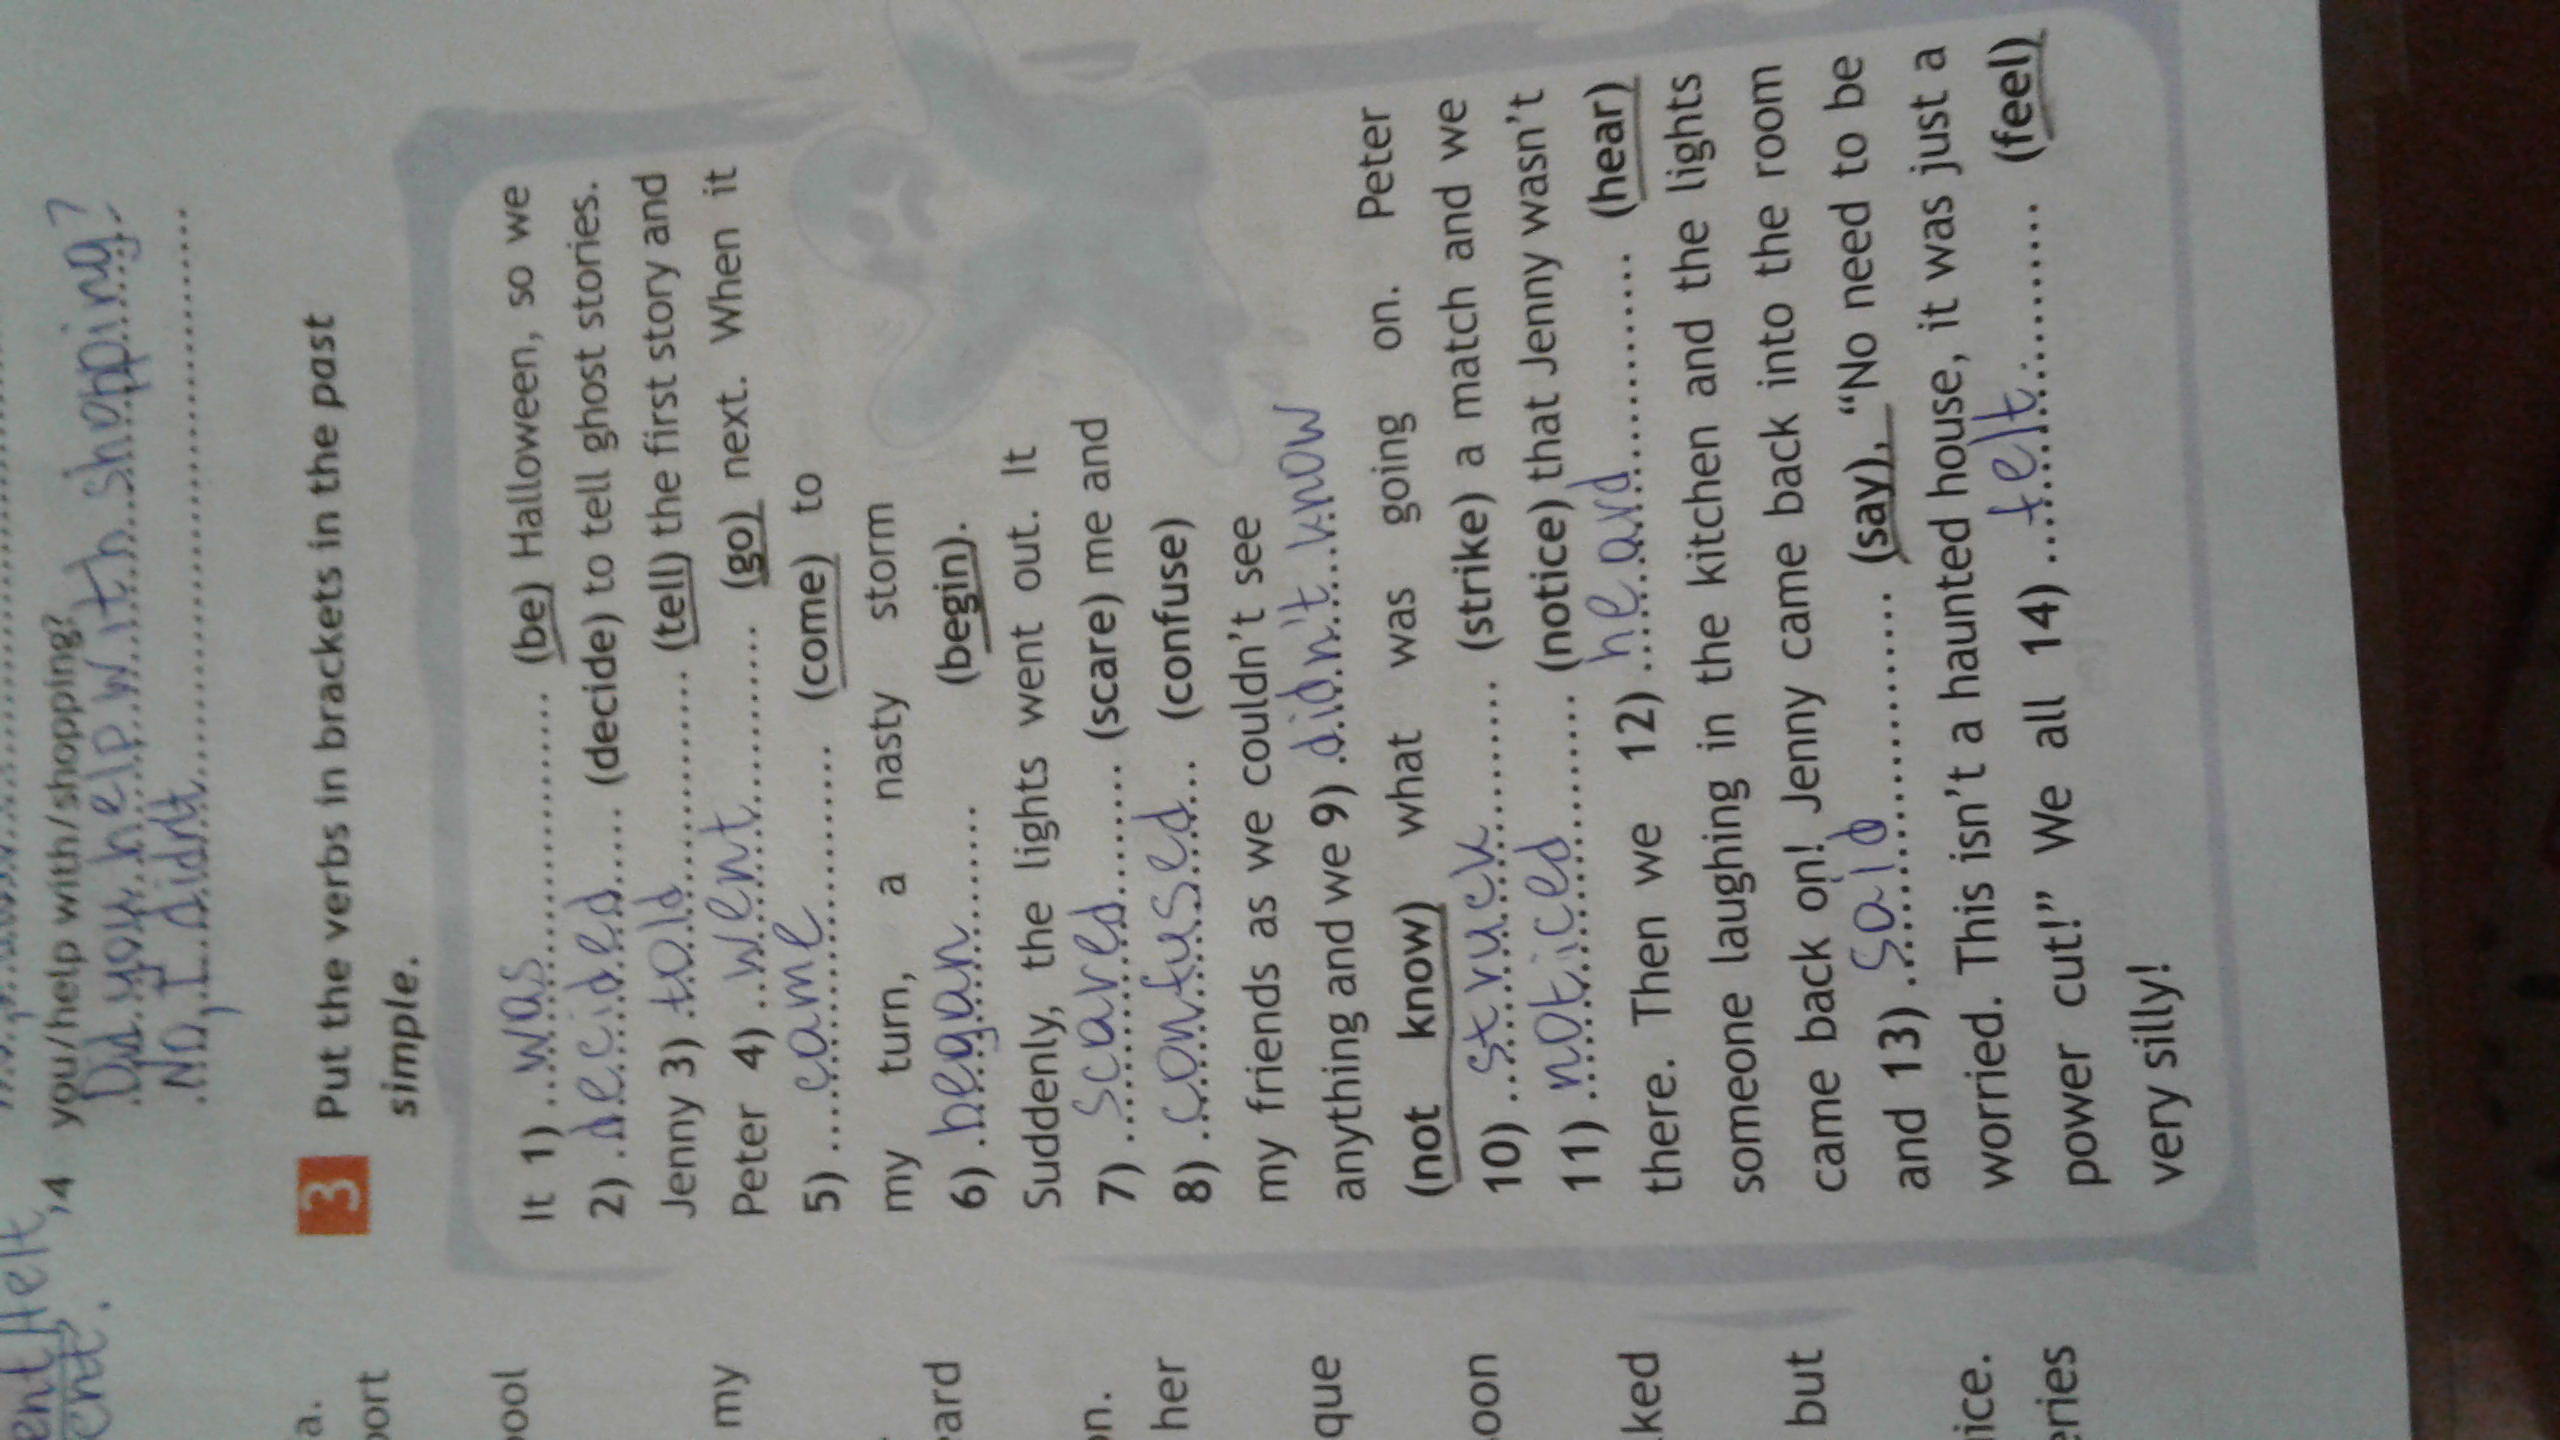 ent felt
cnt.
, 4 you/help with/shopping?
Did you help with shopping?
No, I didn't
3 Put the verbs in brackets in the past
simple.
It 1) ..was.................. (be) Halloween, so we
2) .decided..... (decide) to tell ghost stories.
Jenny 3) .told............... (tell) the first story and
Peter 4) ..went............... (go) next. When it
5) ....came............... (come) to
my turn, a nasty storm
6) .began......... (begin).
Suddenly, the lights went out. It
7) ..scared......... (scare) me and
8) .confused.... (confuse)
my friends as we couldn't see
anything and we 9) .didn't know
(not know) what was going on. Peter
10) ..struck........... (strike) a match and we
11) .noticed........... (notice) that Jenny wasn't
there. Then we 12) ..heard............... (hear)
someone laughing in the kitchen and the lights
came back on! Jenny came back into the room
and 13) ..said................ (say), "No need to be
worried. This isn't a haunted house, it was just a
power cut!" We all 14) ...felt............. (feel)
very silly!
a.
port
ool
my
eard
on.
her
que
oon
ked
but
ice.
eries